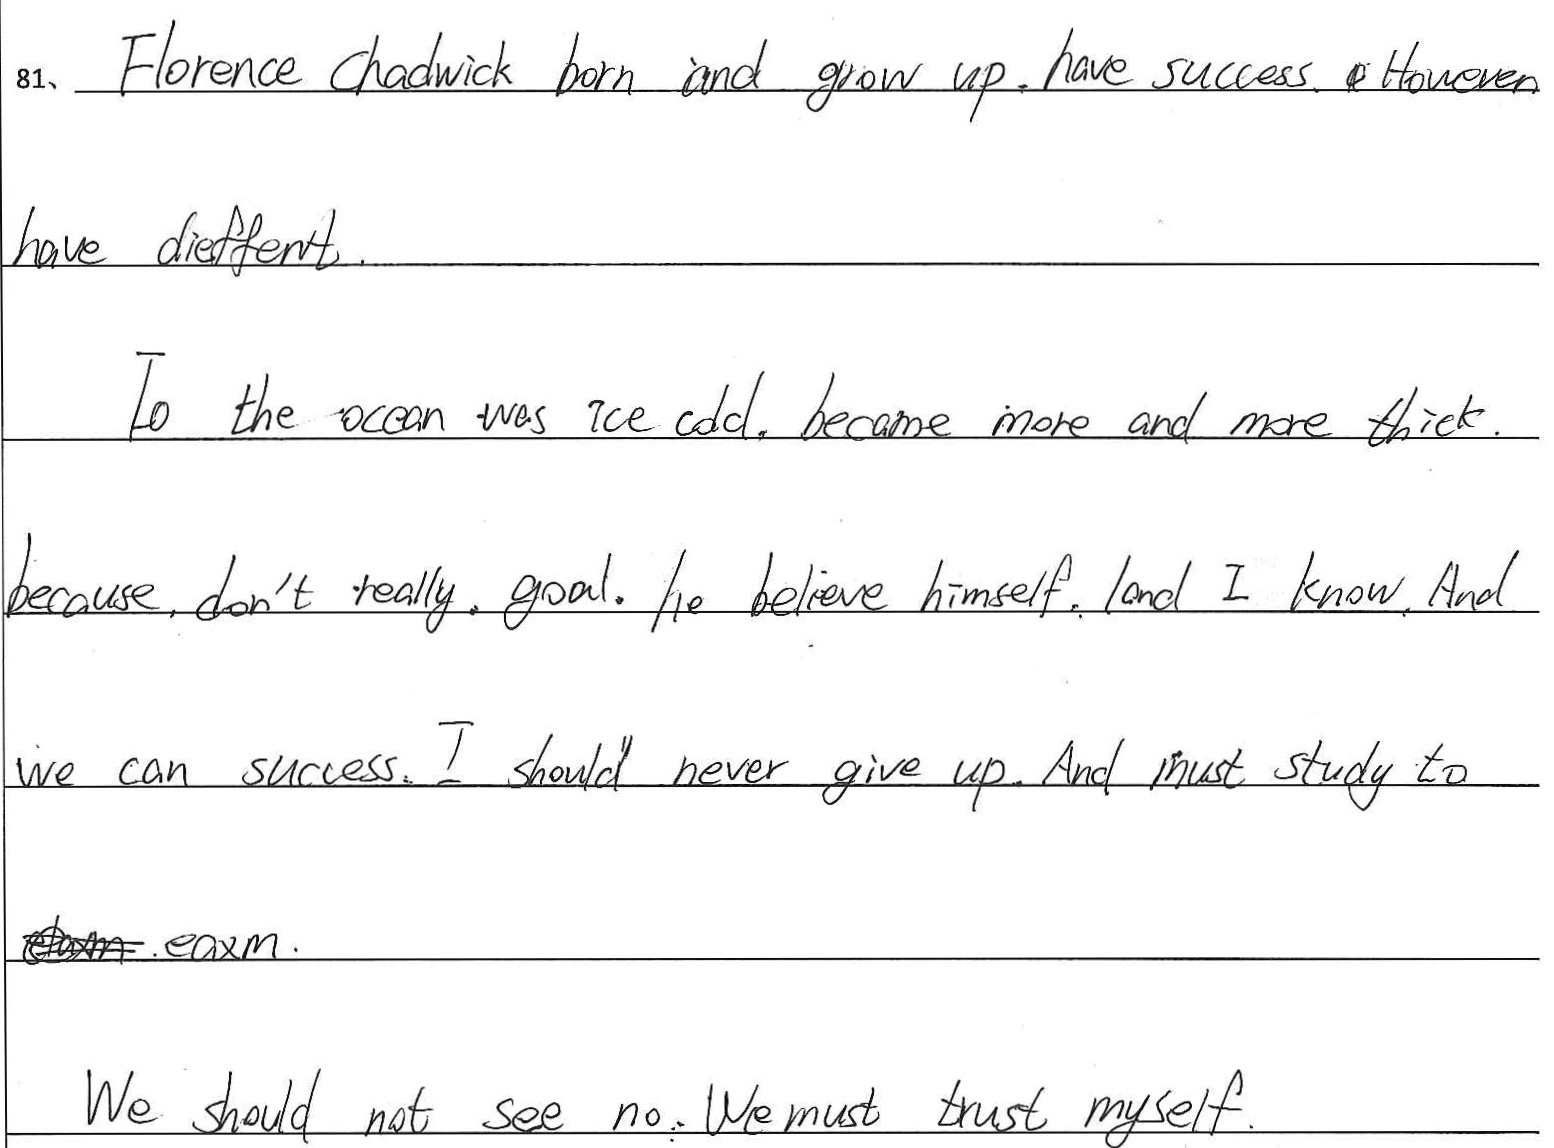 81、 Florence Chadwick born and grow up. have success. However
have dieffent.
To the ocean was ice cold. became more and more thick.
because, don't really. goal. he believe himself. and I know. And
we can success. I should never give up. And must study to
eaxm.
We should not see no. We must trust myself.